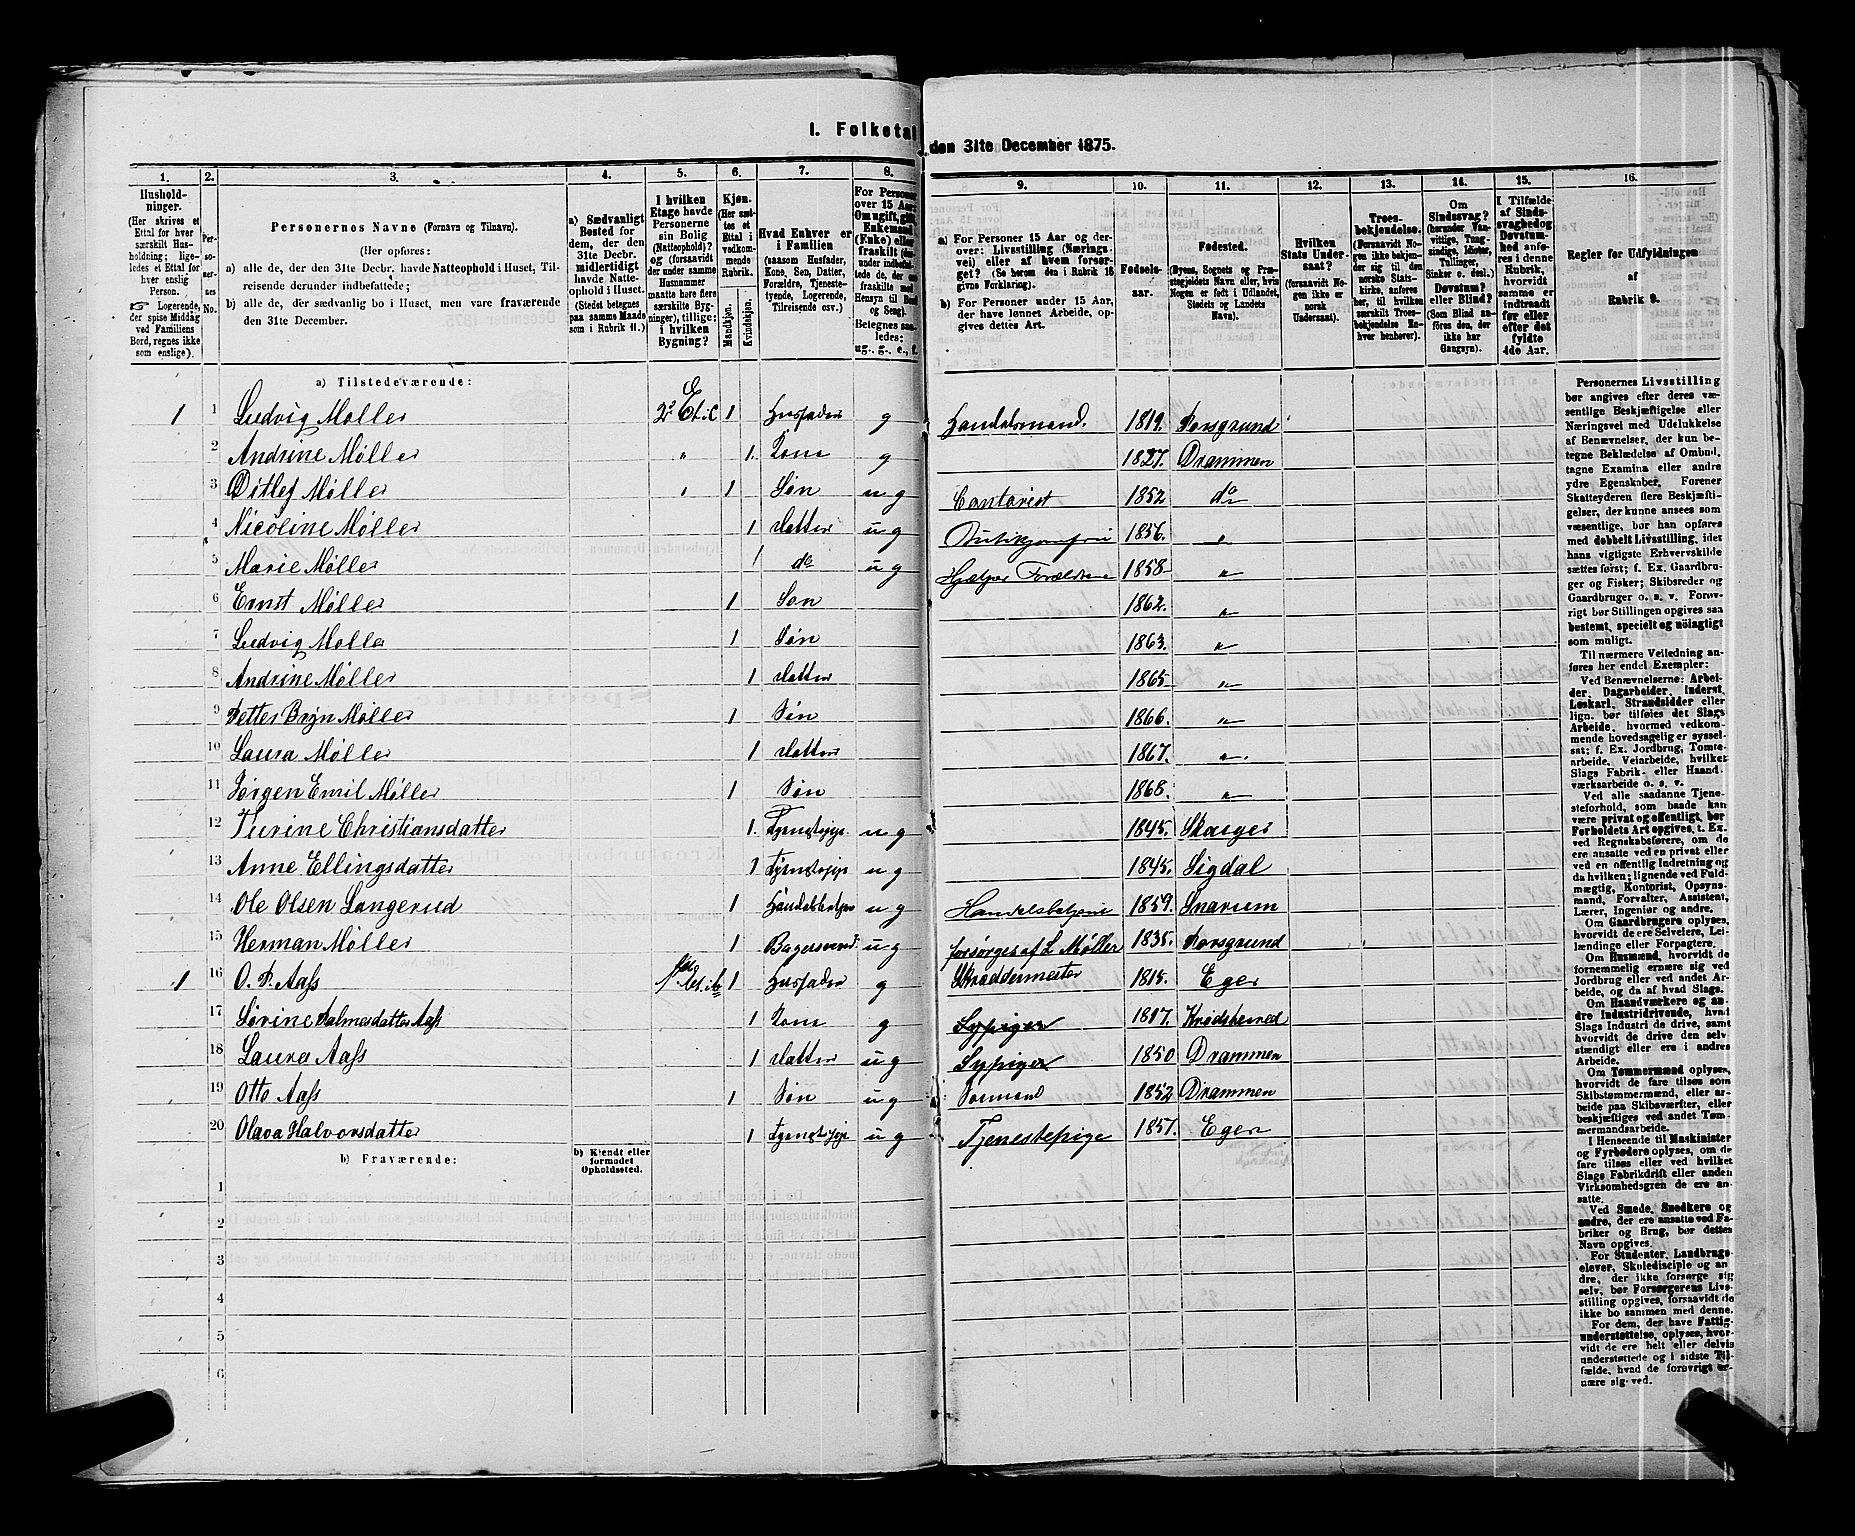 I. Folketal den 31te December 1875.
1. 2. 3. 4. 5. 6. 7. 8. 9. 10. 11. 12. 13. 14. 15. 16.
Husholdninger. (Her skrives et Ettal for hver særskilt Husholdning; ligeledes et Ettal for hver enslig Person. ☞ Logerende, der spise Middag ved Familiens Bord, regnes ikke som enslige).
Personernes No.
Personernes Navne (Fornavn og Tilnavn).
(Her opføres:
a) alle de, der den 31te Decbr. havde Natteophold i Huset, Tilreisende derunder indbefattede;
b) alle de, der sædvanlig bo i Huset, men vare fraværende den 31te December.
a) Sædvanligt Bosted for dem, der den 31te Decbr. midlertidigt havde Natteophold i Huset. (Stedet betegnes paa samme Maade som i Rubrik 11.)
I hvilken Etage havde Personerne sin Bolig (Natteophold)? og (forsaavidt der under samme Husnummer maatte høre flere særskilte Bygninger), tillige: i hvilken Bygning?
Kjøn. (Her sættes et Ettal i vedkommende Rubrik. Mandkjøn. Kvindekjøn.
Hvad Enhver er i Familien (saasom Husfader, Kone, Søn, Datter, Forældre, Tjenestetyende, Logerende, Tilreisende osv.)
a) For Personer 15 Aar og derover: Livsstilling (Næringsvei) eller af hvem forsørget? (Se herom den i Rubrik 16 givne Forklaring).
b) For Personer under 15 Aar, der have lønnet Arbeide, opgives dettes Art.
Fødselsaar.
Fødested. (Byens, Sognets og Præstegjeldets Navn eller, hvis Nogen er født i Udlandet, Stedets og Landets Navn).
Hvilken Stats Undersaat? (forsaavidt Nogen ikke er norsk Undersaat).
Troesbekjendelse. (Forsaavidt Nogen ikke bekjender sig til den norske Statskirke, anføres her, til hvilken særskilt Troesbekjendelse Enhver henhører).
Om Sindssvag? (herunder Vanvittige, Tungsindige, Idioter, Tullinger, Sinker o. desl.) Døvstum? eller Blind? (Som Blind anføres den, der ikke har Gangsyn).
I Tilfælde af Sindssvaghed og Døvstumhed anføres i denne Rubrik, hvorvidt samme er indtraadt før eller efter det fyldte 4de Aar.
Regler for Udfyldningen af Rubrik 9.
a) Tilstedeværende:
1 1 Ludvig Møller 2 Et. 1 Husfader g Handelsmand. 1819. Porsgrund
2 Andrine Møller " 1. Kone g 1827. Drammen
3 Ditlef Møller " 1 Søn u g Contorist 1852 do
4 Nicoline Møller 1 Datter u g Butikjomfru 1856. "
5 Marie Møller 1 do u g Hjælper Forældrene 1858 "
6 Ernst Møller 1 Søn 1862. "
7 Ludvig Møller 1 Søn 1863. "
8 Andrine Møller 1 Datter 1865 "
9 Petter Bryn Møller 1 Søn 1866. "
10 Laura Møller 1 Datter 1867. "
11 Jørgen Emil Møller 1 Søn 1868. "
12 Thrine Christiansdatter 1. Tjenstepige u g 1845. Skoger
13 Anne Ellingsdatter 1 Tjenstepige u g 1845. Sigdal
14 Ole Olsen Langerud 1 Handelsbetjent u g Handelsbetjent 1859. Snarum
15 Herman Møller 1 Bagersvend u g forsørges af L Møller 1835. Porsgrund
1 16 O. P. Aass 1 Husfader g Skreddermester 1815. Eger
17 Sørine Palmesdatter Aass 1 Kone g Sypiger 1817. Krødsherred
18 Laura Aass 1 Datter u g Sypiger 1850 Drammen
19 Otto Aass 1 Søn u g Sømand 1852 Drammen
20 Olava Halvorsdatter 1 Tjenstepige u g Tjenestepige 1857. Eger
b) Fraværende:
b) Kjendt eller formodet Opholdssted.
1
2
3
4
5
6
Personernes Livsstilling bør angives efter deres væsentlige Beskjæftigelse eller Næringsvei med Udelukkelse af Benævnelser, der kun betegne Beklædelse af Ombud, tagne Examina eller andre ydre Egenskaber. Forener Skatteyderen flere Beskjæftigelser, der kunne ansees som væsentlige, bør han opføres med dobbelt Livsstilling, idet hans vigtigste Erhvervskilde sættes først; f. Ex. Gaardbruger og Fisker; Skibsreder og Gaardbruger o. s. v. Forøvrigt bør Stillingen opgives saa bestemt, specielt og nöiagtigt som muligt.
Til nærmere Veiledning anføres her endel Exempler:
Ved Benævnelserne: Arbeider, Dagarbeider, Inderst, Løskarl, Strandsidder eller lign. bør tilføies det Slags Arbeide, hvormed vedkommende hovedsagelig er sysselsat; f. Ex. Jordbrug, Tomtearbeide, Veiarbeide, hvilket Slags Fabrik- eller Haandværksarbeide o. s. v.
Ved alle saadanne Tjenesteforhold, som baade kan være private og offentlig, bør Forholdets Art opgives, t. Ex. ved Regnskabsførere, om de ere ansatte ved en privat eller ved en offentlig Indretning og da hvilken; lignende ved Fuldmægtig, Kontorist, Opsynsmand, Forvalter, Assistent, Lærer, Ingeniør og andre.
Om Gaardbrugere oplyses, hvorvidt de ere Selveiere, Leilændinge eller Forpagtere.
Om Husmænd, hvorvidt de fornemmelig ernære sig ved Jordbrug eller ved andet Arbeide, og da af hvad Slags.
Om Haandværkere og andre Industridrivende, hvad Slags Industri de drive, samt hvorvidt de drive den selvstændigt eller ere i andres Arbeide.
Om Tømmermænd oplyses, hvorvidt de fare tilsøs som Skibstømmermænd, eller arbeide paa Skibsværfter, eller beskjæftiges ved andet Tømmermandsarbeide.
I Henseende til Maskinister og Fyrbødere oplyses, om de fare tilsøs eller ved hvilket Slags Fabrikdrift eller anden Virksomhedsgren de ere ansatte.
Ved Smede, Snedkere og andre, der ere ansatte ved Fabriker og Brug, bør dettes Navn opgives.
For Studenter, Landbrugselever, Skoledisciple og andre, der ikke forsørge sig selv, bør Forsørgerens Livsstilling opgives, forsaavidt de ikke bo sammen med denne.
For dem, der have Fattigunderstøttelse, oplyses, hvorvidt de ere helt eller delvis understøttede og i sidste Tilfælde, hvad de forøvrigt ernære sig ved.